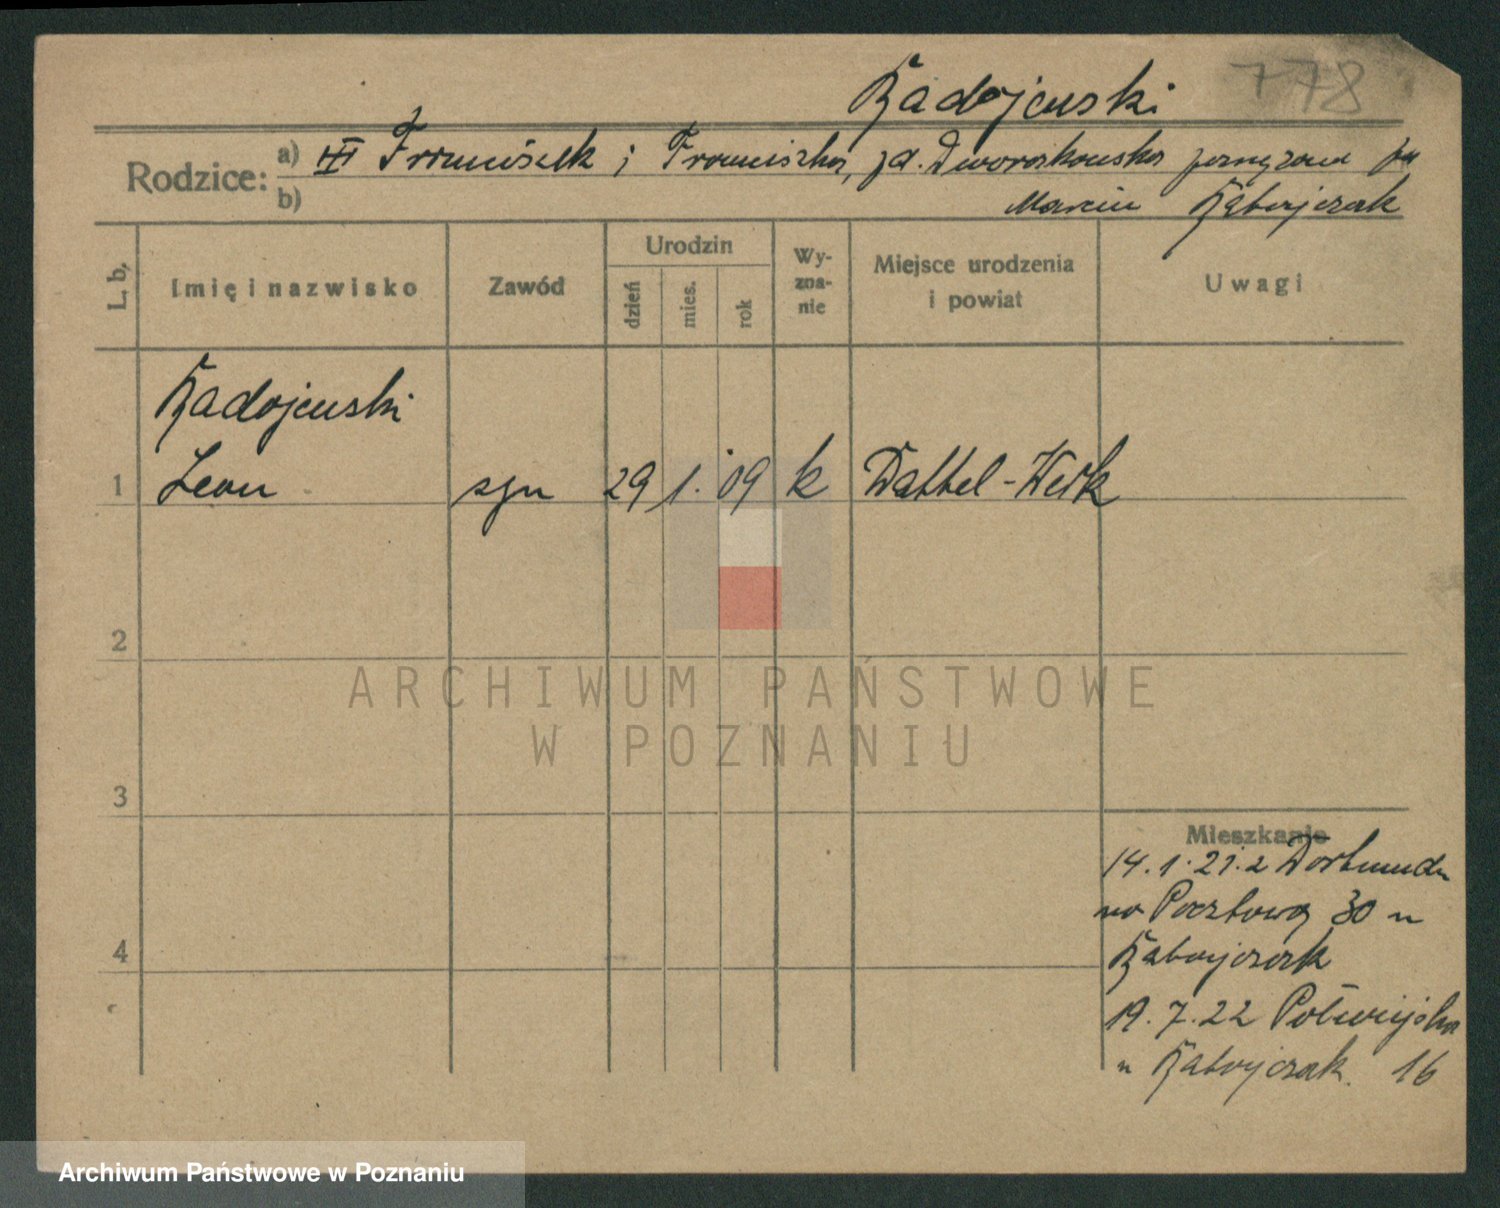 Radojewski 778
Rodzice: a) III Franciszek i Franciszka, zd. Dworakowska zamężna
b) Marcin Ratajczak
L. b. Imię i nazwisko Zawód Urodzin dzień mies. rok Wyznanie Miejsce urodzenia i powiat Uwagi
Radojewski
1 Leon syn 29 1. 09 k
2
3
4
Mieszkanie
14.1.21. z Dortmundu
na Pocztową 30 u
Ratajczak
19.7.22 Półwiejska
u Ratajczak. 16
ARCHIWUM PAŃSTWOWE
W POZNANIU
Archiwum Państwowe w Poznaniu